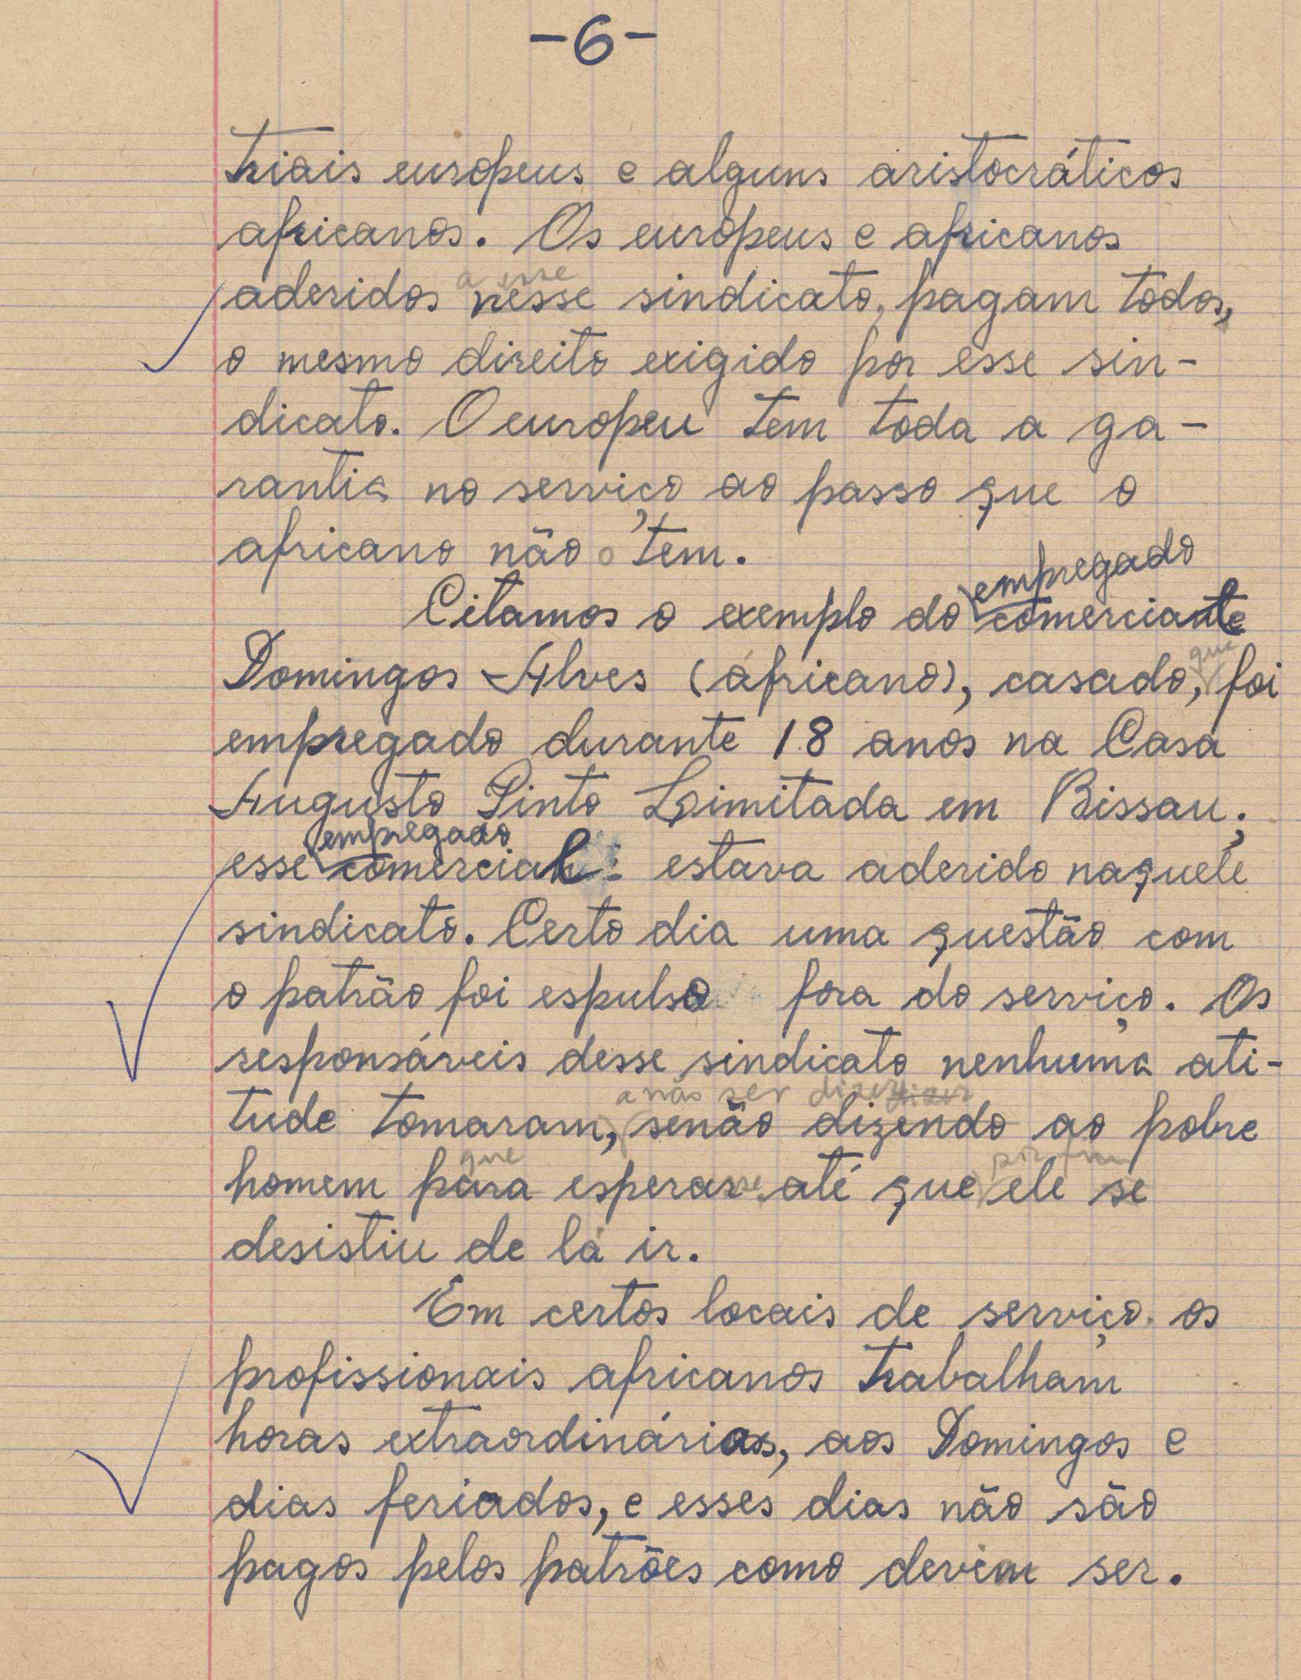 -6-
triais europeus e alguns aristocráticos
africanos. Os europeus e africanos
a esse
aderidos nesse sindicato, pagam todos,
o mesmo direito exigido por esse sin-
dicato. O europeu tem toda a ga-
rantia no serviço ao passo que o
africano não o tem.
empregado
Citamos o exemplo do comerciante
que
Domingos Alves (africano), casado, foi
empregado durante 18 anos na Casa
Augusto Pinto Limitada em Bissau;
empregado
esse comercial estava aderido naquele
sindicato. Certo dia uma questão com
o patrão foi espulso fora do serviço. Os
responsáveis desse sindicato nenhuma ati-
a não ser dizer
tude tomaram, senão dizendo ao pobre
que por fim
homem para esperar até que ele se
desistiu de lá ir.
Em certos locais de serviço os
profissionais africanos trabalham
horas extraordinárias, aos Domingos e
dias feriados, e esses dias não são
pagos pelos patrões como deviam ser.